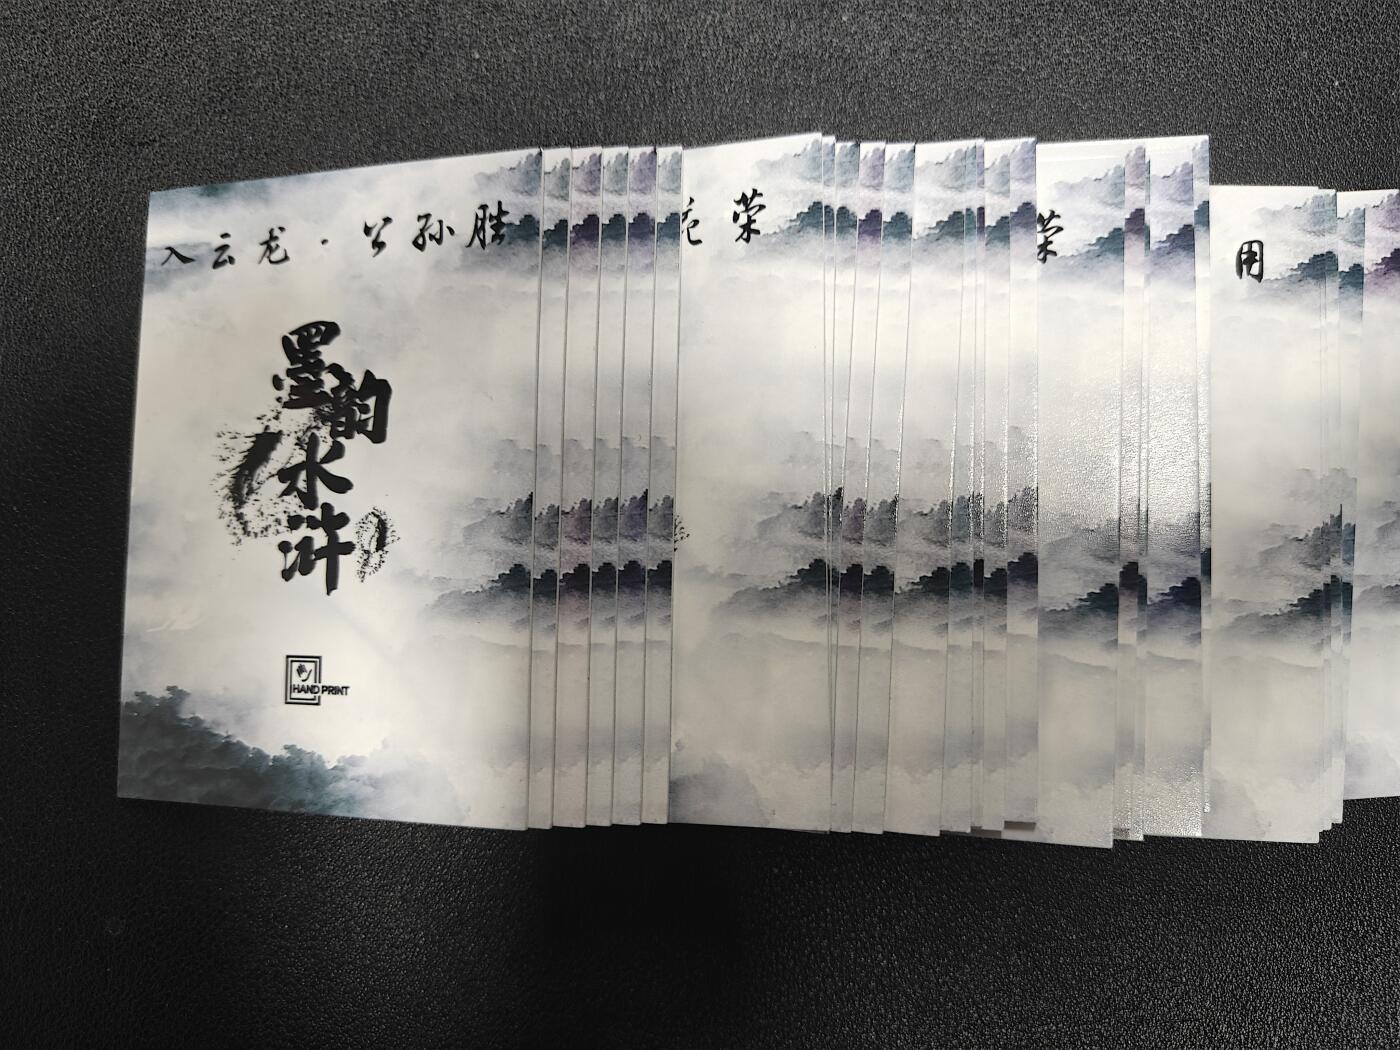 入云龙·公孙胜
墨韵水浒
HAND PRINT
花荣
荣
用